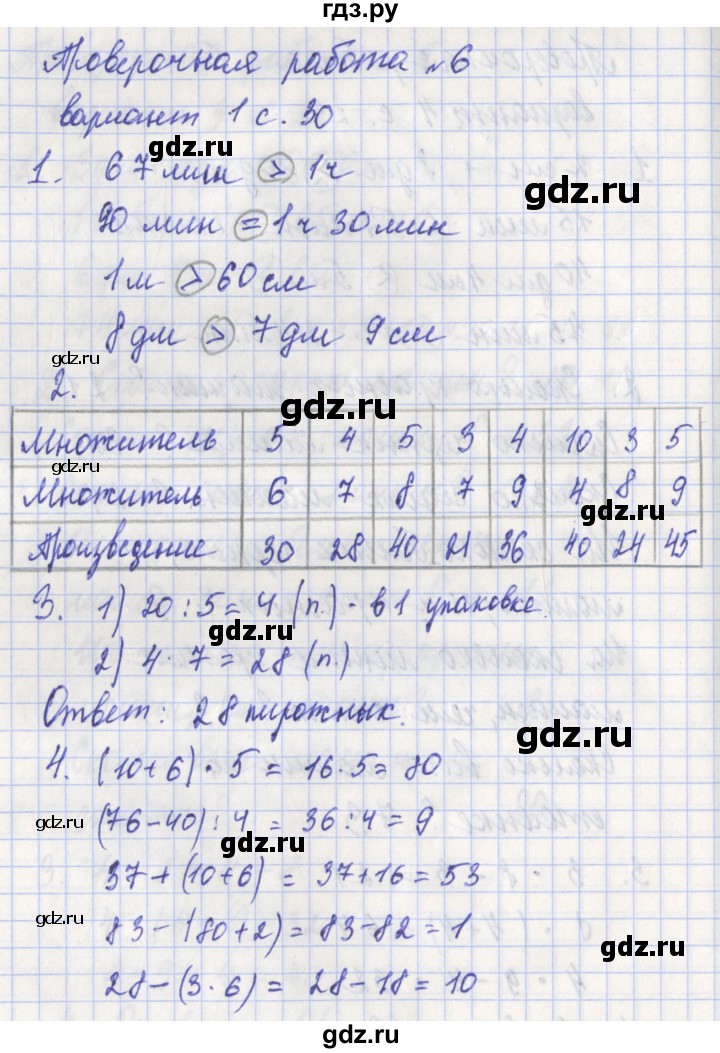 гдз.ру
Проверочная работа №6
вариант 1 с. 30
gdz.ru
1. 67 мин > 1 ч
gdz.ru
90 мин = 1 ч 30 мин
1 м > 60 см
gdz.ru
8 дм > 7 дм 9 см
gdz.ru
2.
gdz.ru
Множитель 5 4 5 3 4 10 3 5
gdz.ru
Множитель 6 7 8 7 9 4 8 9
gdz.ru
Произведение 30 28 40 21 36 40 24 45
3. 1) 20 : 5 = 4 (п.) - в 1 упаковке.
gdz.ru
2) 4 · 7 = 28 (п.)
gdz.ru
Ответ: 28 пирожных.
gdz.ru
4. (10+6) · 5 = 16 · 5 = 80
gdz.ru
(76-40) : 4 = 36 : 4 = 9
gdz.ru
37 + (10+6) = 37+16 = 53
gdz.ru
83 - (80+2) = 83-82 = 1
gdz.ru
28 - (3 · 6) = 28 - 18 = 10
gdz.ru
gdz.ru